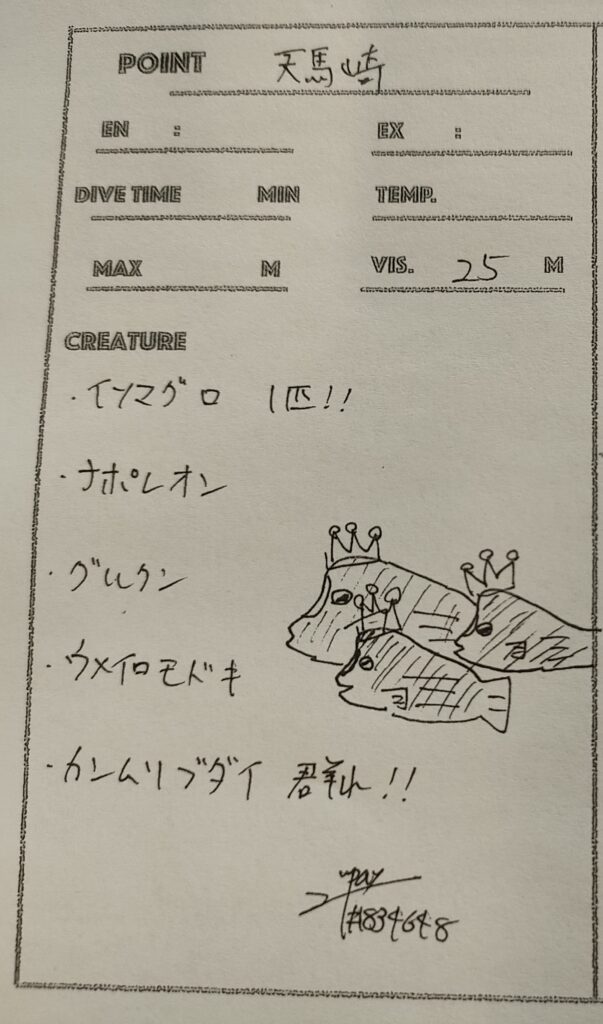 POINT 天馬崎
EN : EX :
DIVE TIME MIN TEMP.
MAX M VIS. 25 M
CREATURE
・イソマグロ 1匹!!
・ナポレオン
・グルクン
・ウメイロモドキ
・カンムリブダイ 群れ!!
#834648